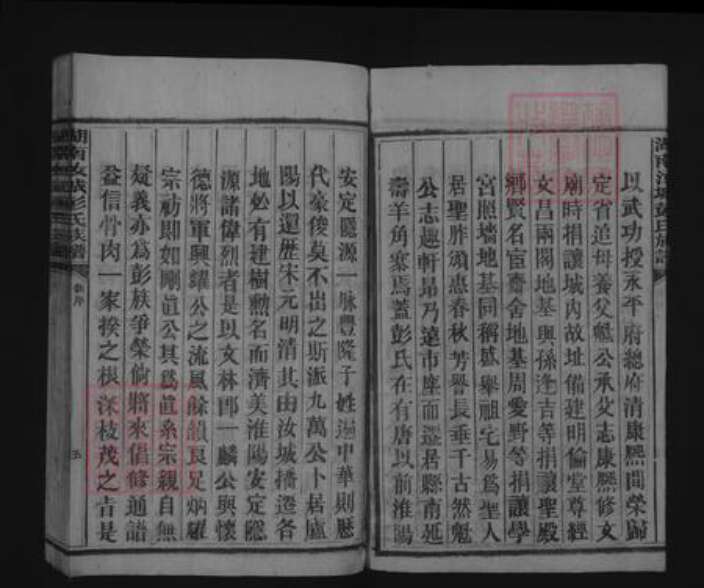 以武功授永平府總府清康熙間榮歸
定省追母養父魁公承父志康熙修文
廟時捐讓城內故址備建明倫堂尊經
文昌兩閣地基與孫逢吉等捐讓聖殿
鄉賢名宦齋舍地基周愛野等捐讓學
宮照墻地基同稱盛舉祖宅易為聖人
居聖胙頒惠春秋芳譽長垂千古然魁
公志趣軒昂乃遠市座而遷居縣南延
壽羊角寨焉蓋彭氏在有唐以前淮陽
安定隱源一脉豐隆子姓遍中華則歷
代豪俊莫不出之斯派九萬公卜居廬
陽以還歷宋元明清其由汝城播遷各
地必有建樹勲名而濟美淮陽安定隱
源諸偉烈者是以文林郎一麟公與懷
德將軍興耀公之流風餘韻良足炳耀
宗祊即如剛直公其為直系宗親自無
疑義亦為彭族爭榮倘將來倡修通譜
益信骨肉一家揆之根深枝茂之旨是
湖南汝城彭氏族譜
五